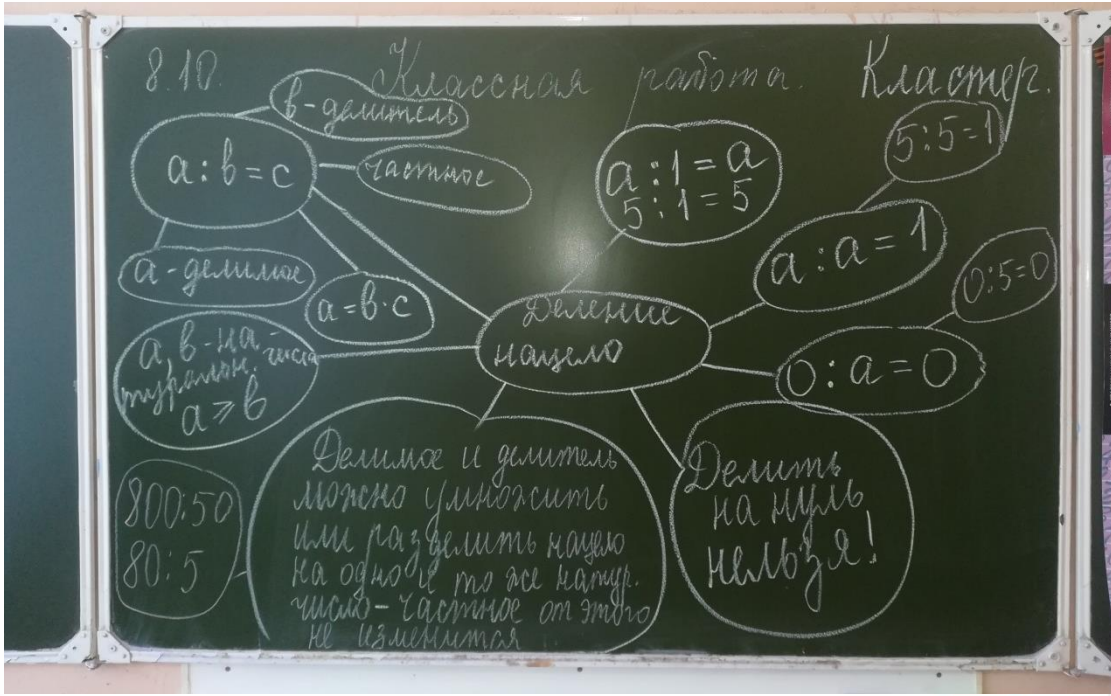 8.10. Классная работа. Кластер.
в-делитель
a : в = c
частное
а-делимое
a = в·c
a, в - на-
туральн. числа
a ⩾ в
a : 1 = a
5 : 1 = 5
5 : 5 = 1
a : a = 1
0 : 5 = 0
0 : a = 0
Деление
нацело
800:50
80:5
Делимое и делитель
можно умножить
или разделить нацело
на одно и то же натур.
число - частное от этого
не изменится
Делить
на нуль
нельзя!